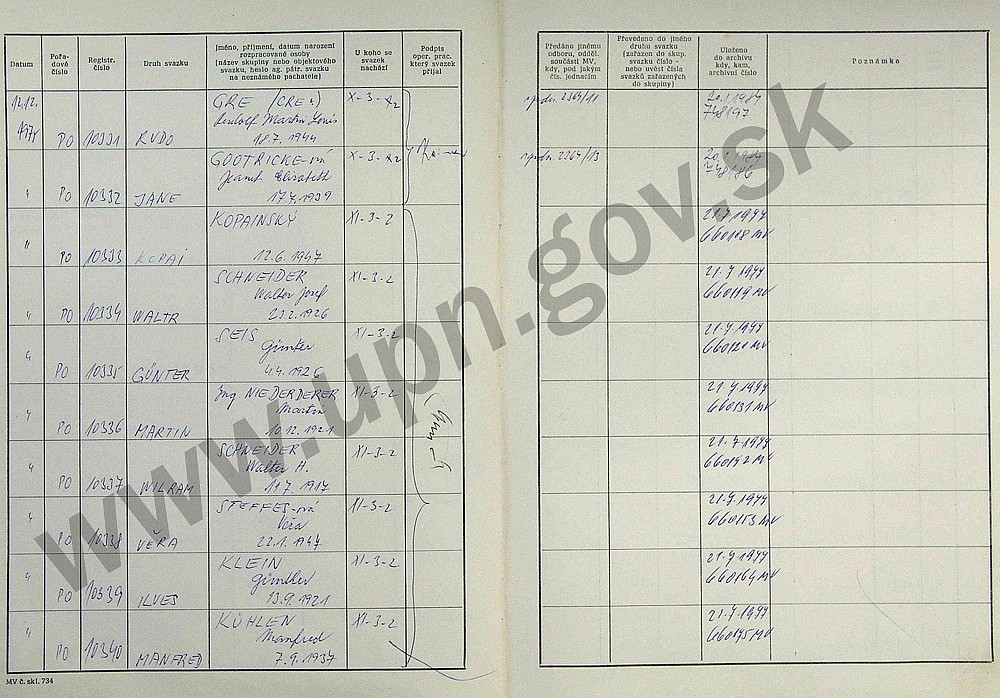 Datum
Pořa-
dové
číslo
Registr.
číslo
Druh svazku
Jméno, příjmení, datum narození
rozpracované osoby
(název skupiny nebo objektového
svazku, heslo ag. pátr. svazku
na neznámého pachatele)
U koho se
svazek
nachází
Podpis
oper. prac.
který svazek
přijal
Předáno jinému
odboru, odděl.
součásti MV,
kdy, pod jakým
čís. jednacím
Převedeno do jiného
druhu svazku
(zařazen do skup.
svazku číslo -
nebo uvést čísla
svazků zařazených
do skupiny)
Uloženo
do archivu
kdy, kam,
archivní číslo
Poznámka
12.12.
GRE
Rudolf Martin Louis
18.7.1944
PO 10331 KUDO
X-3-
2364/11
748197
GOOTRICKE-ová
Jeanet Elizabeth
1939
" PO 10332 JANE
X-3-
20.1.1984
748186
KOPAINSKÝ
12.6.1947
" PO 10333 KOPAI
XI-3-2
21.7.1977
SCHNEIDER
Walter Josef
1926
" PO 10334 WALTR
XI-3-2
21.7.1977
660119 MV
SEIS
Günter
4.4.1926
" PO 10335 GÜNTER
XI-3-2
21.7.1977
660120 MV
Ing NIEDERDERER
Martin
10.12.1921
" PO 10336 MARTIN
XI-3-2
21.7.1977
660131 MV
SCHNEIDER
Walter H.
11.7.1917
" PO 10337 WILRAM
XI-3-2
21.7.1977
660142 MV
STEFFES-ová
Věra
22.1.1947
" PO 10338 VĚRA
XI-3-2
21.7.1977
660153 MV
KLEIN
Günther
13.9.1921
" PO 10339 ILVES
XI-3-2
21.7.1977
660164 MV
KÜHLEN
Manfred
7.9.1937
" PO 10340 MANFRED
XI-3-2
21.7.1977
660175 MV
MV č. skl. 734
www.upn.gov.sk